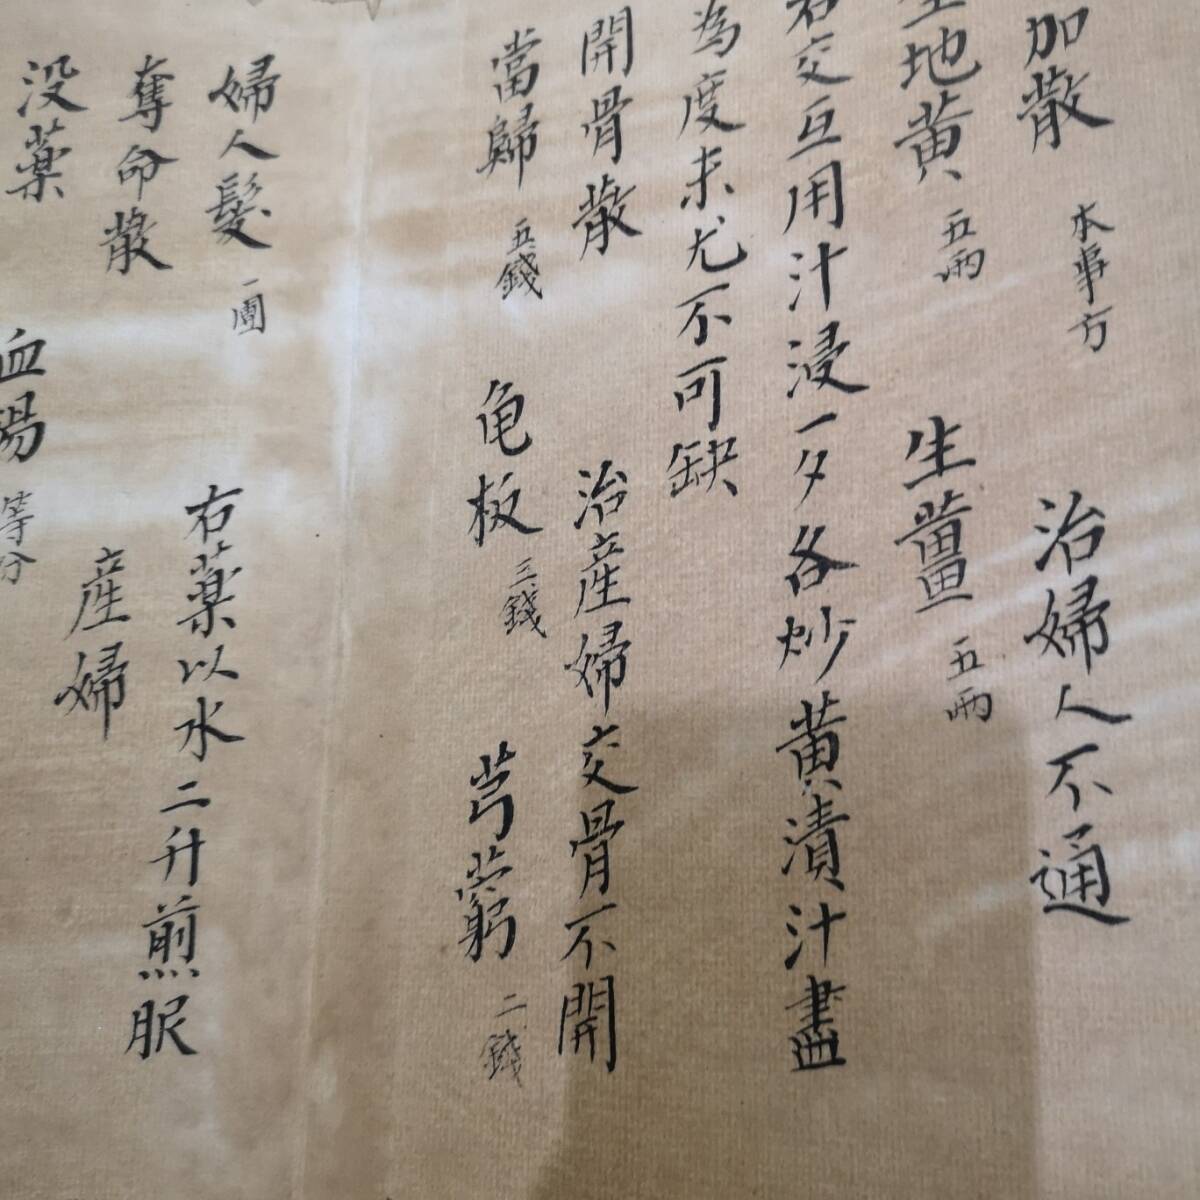 加散 本事方 治婦人不通
生地黄 五兩 生薑 五兩
右交互用汁浸一夕各炒黄漬汁盡
為度末尤不可缺
開骨散 治産婦交骨不開
當歸 五錢 亀板 三錢 芎藭 二錢
婦人髮 一團 右薬以水二升煎服
奪命散 産婦
没薬 血 等分